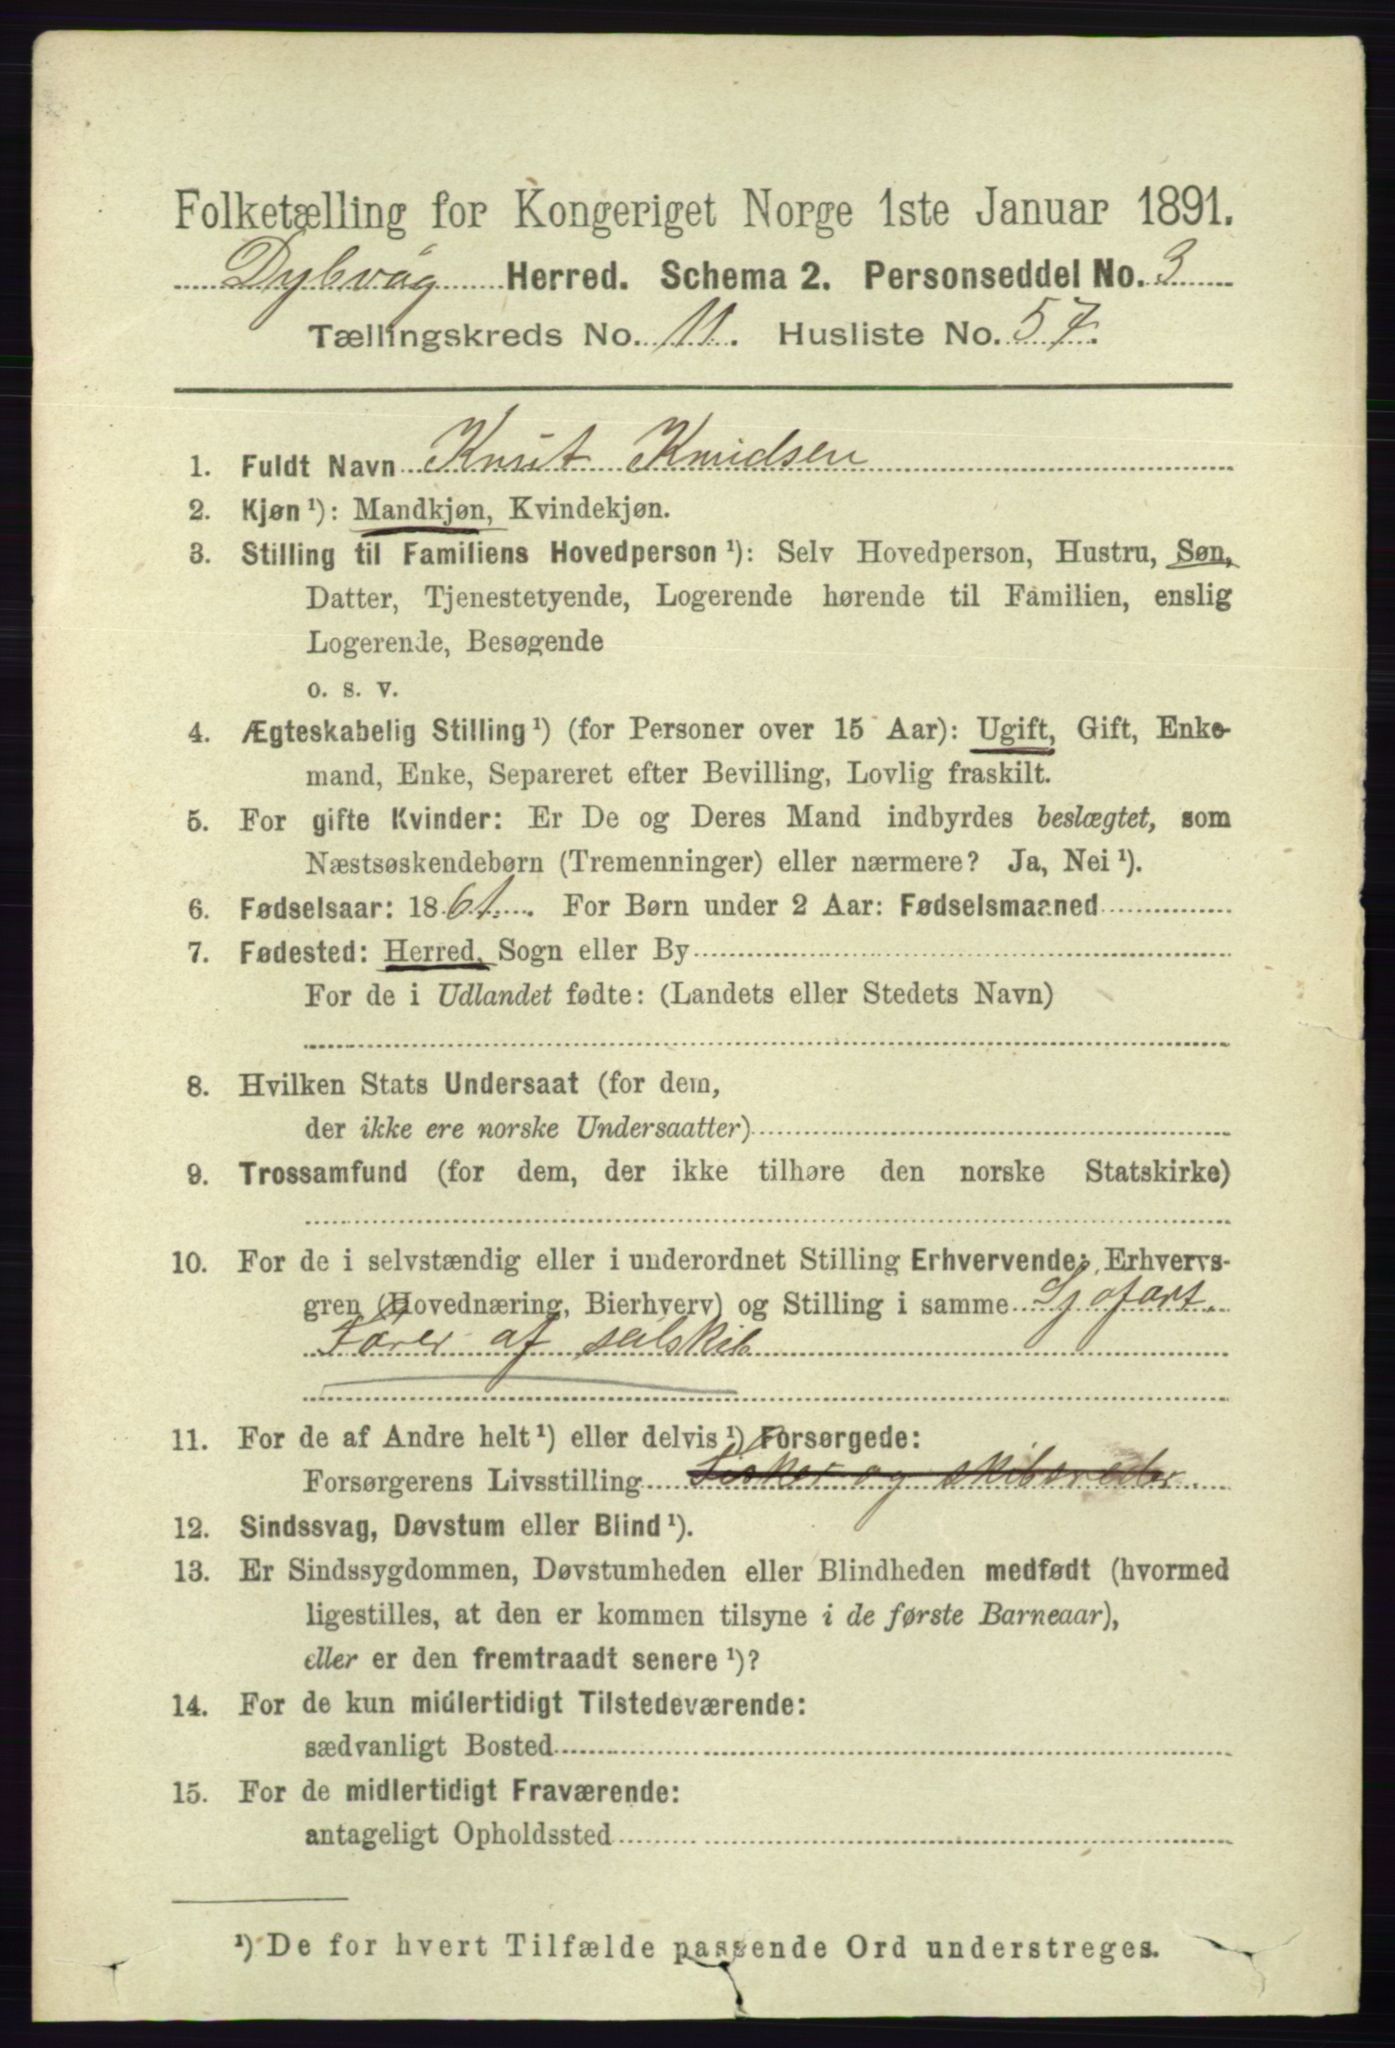 Folketælling for Kongeriget Norge 1ste Januar 1891.
Dybvåg Herred. Schema 2. Personseddel No. 3
Tællingskreds No. 11. Husliste No. 57.
1. Fuldt Navn Knut Knudsen
2. Kjøn¹): Mandkjøn, Kvindekjøn.
3. Stilling til Familiens Hovedperson¹): Selv Hovedperson, Hustru, Søn,
Datter, Tjenestetyende, Logerende hørende til Familien, enslig
Logerende, Besøgende
o. s. v.
4. Ægteskabelig Stilling¹) (for Personer over 15 Aar): Ugift, Gift, Enke-
mand, Enke, Separeret efter Bevilling, Lovlig fraskilt.
5. For gifte Kvinder: Er De og Deres Mand indbyrdes beslægtet, som
Næstsøskendebørn (Tremenninger) eller nærmere? Ja, Nei¹).
6. Fødselsaar: 1861. For Børn under 2 Aar: Fødselsmaaned
7. Fødested: Herred, Sogn eller By
For de i Udlandet fødte: (Landets eller Stedets Navn)
8. Hvilken Stats Undersaat (for dem,
der ikke ere norske Undersaatter)
9. Trossamfund (for dem, der ikke tilhøre den norske Statskirke)
10. For de i selvstændig eller i underordnet Stilling Erhvervende: Erhvervs-
gren (Hovednæring, Bierhverv) og Stilling i samme Sjøfart.
Fører af seilskib
11. For de af Andre helt¹) eller delvis¹) Forsørgede:
Forsørgerens Livsstilling Fisker og skibsreder
12. Sindssvag, Døvstum eller Blind¹).
13. Er Sindssygdommen, Døvstumheden eller Blindheden medfødt (hvormed
ligestilles, at den er kommen tilsyne i de første Barneaar),
eller er den fremtraadt senere¹)?
14. For de kun midlertidigt Tilstedeværende:
sædvanligt Bosted
15. For de midlertidigt Fraværende:
antageligt Opholdssted
¹) De for hvert Tilfælde passende Ord understreges.